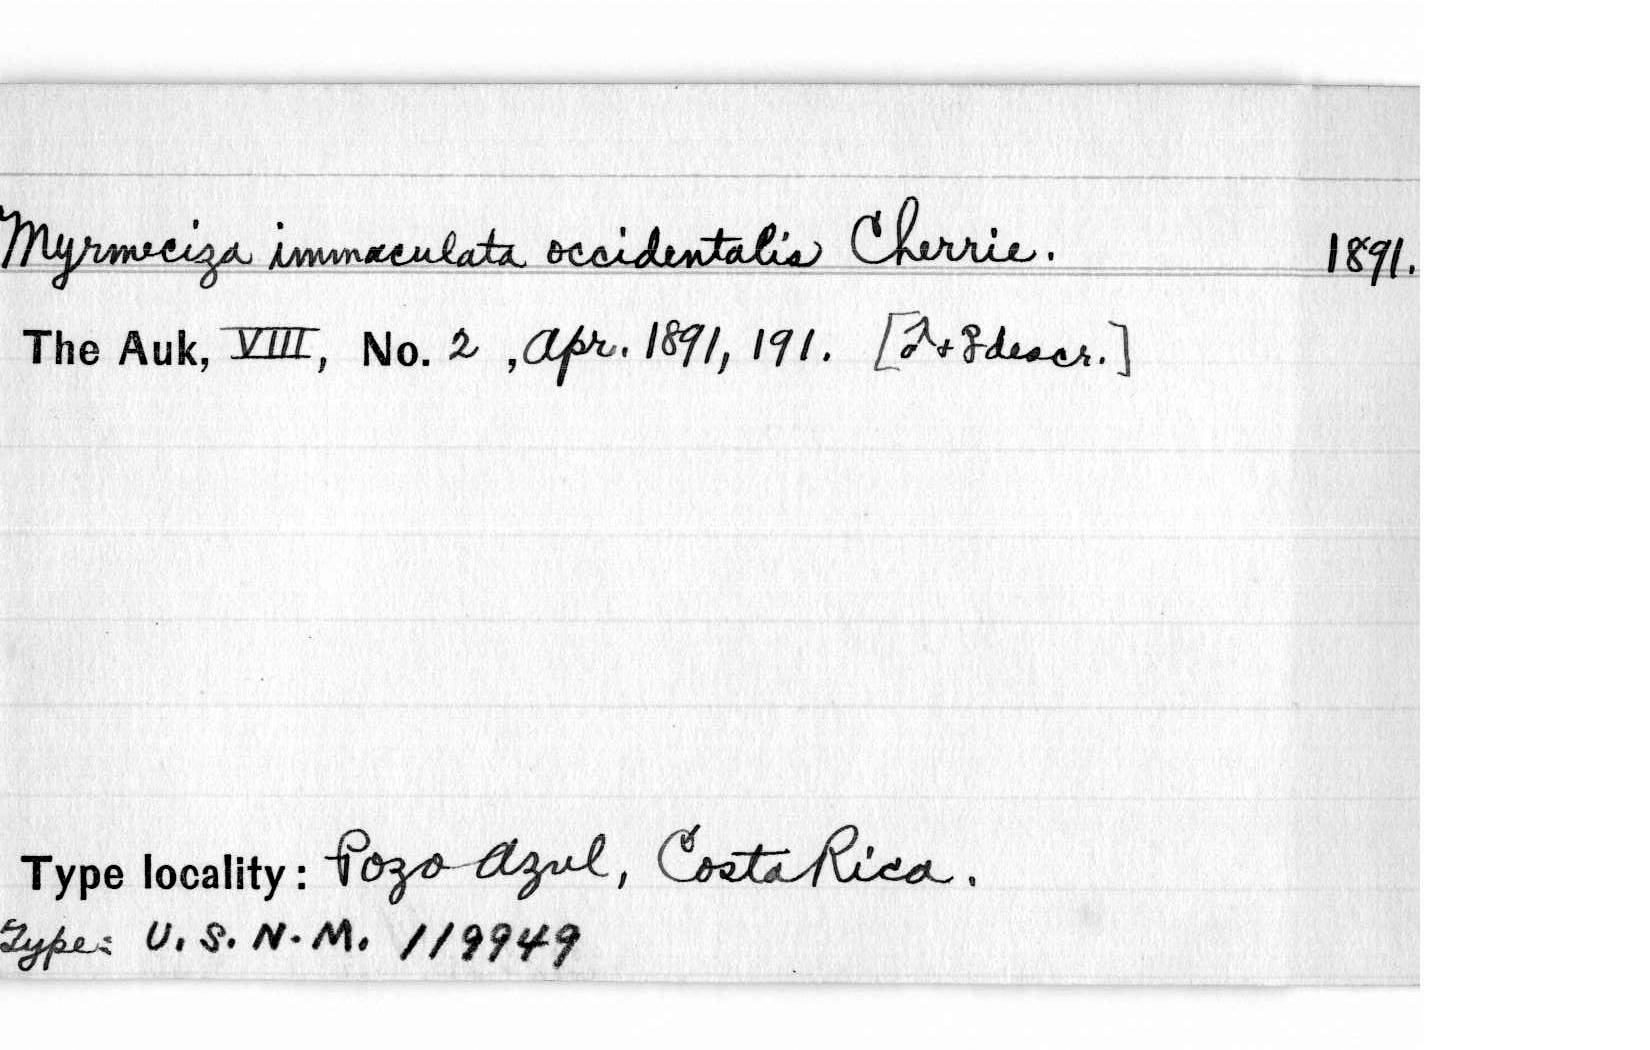 Myrmeciza immaculata occidentalis Cherrie. 1891.
The Auk, VIII, No. 2, Apr. 1891, 191. [♂ + ♀ descr.]
Type locality: Pozo Azul, Costa Rica.
Type: U.S.N.M. 119949